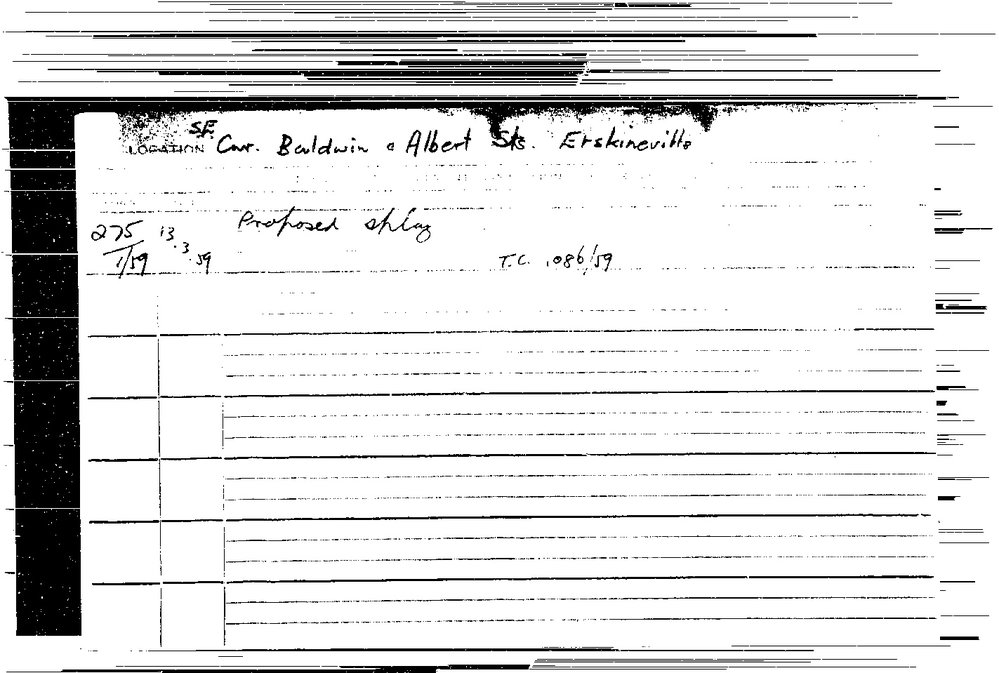 S.E.
LOCATION Cnr. Baldwin & Albert Sts. Erskineville
275 13 Proposed splay
1/59 .3.59 T.C. 1086/59